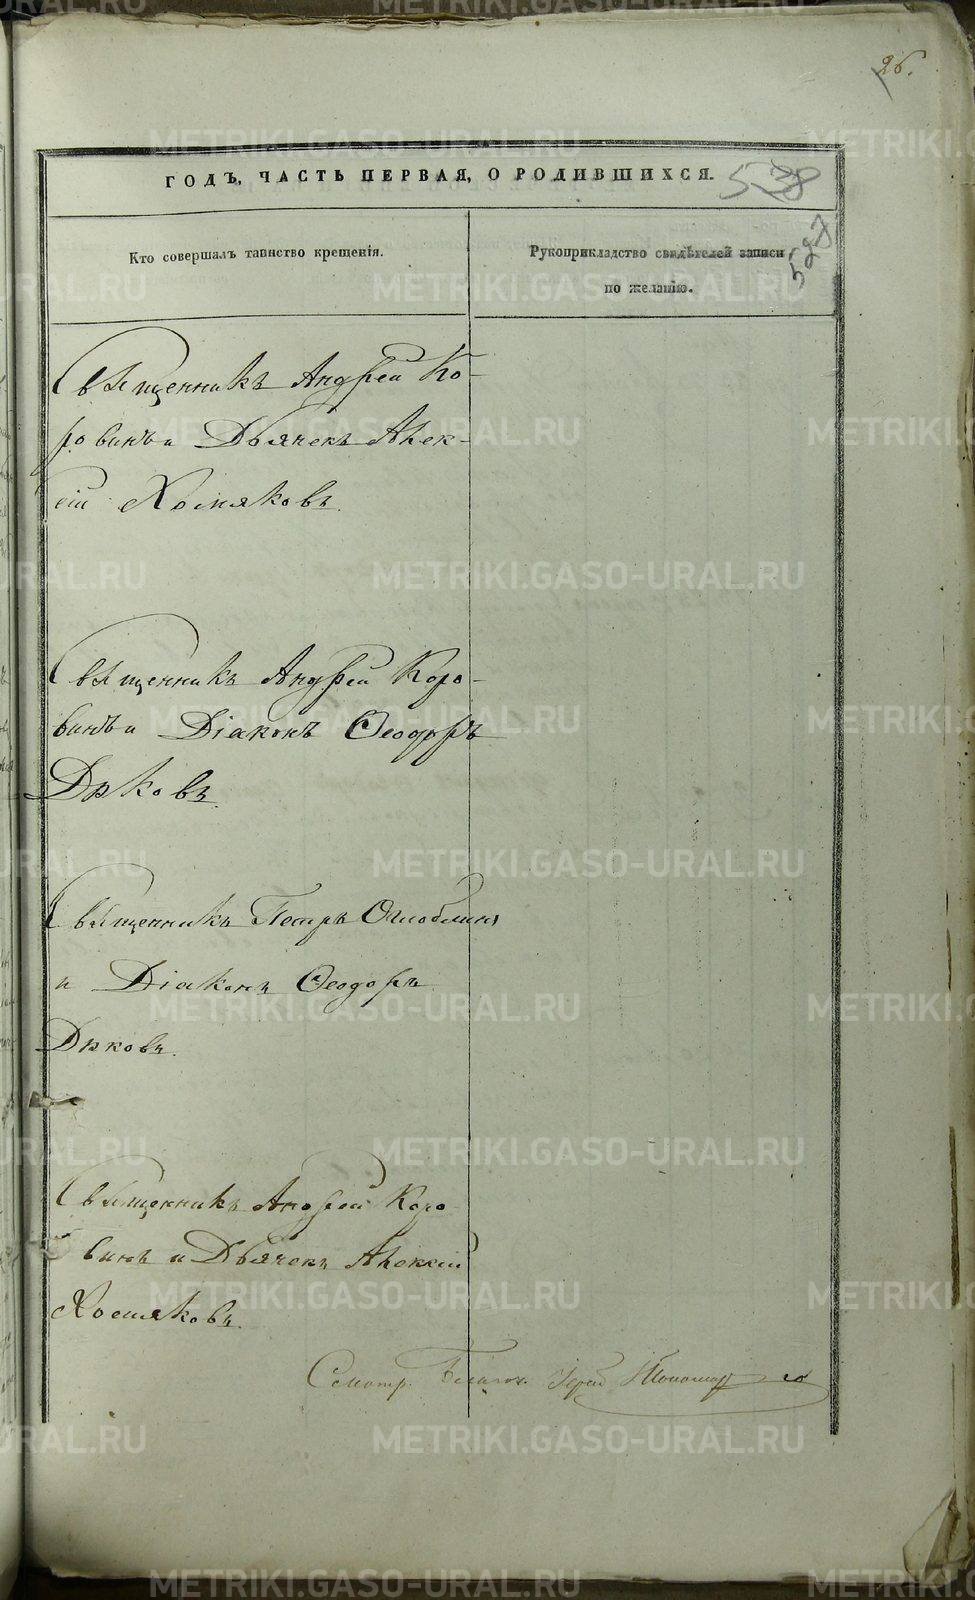 26.
ГОДЪ, ЧАСТЬ ПЕРВАЯ, О РОДИВШИХСЯ.
538
527
Кто совершалъ таинство крещенія.
Рукоприкладство свидѣтелей записи
по желанію.
Священникъ Андрей Ко-
ровинъ и Дьячекъ Алек-
сій Хомяковъ.
Священникъ Андрей Коро-
винъ и Діаконъ Ѳеодоръ
Дяковъ.
Священникъ Петръ Оглоблинъ
и Діаконъ Ѳеодоръ
Дяковъ.
Священникъ Андрей Коро
винъ и Дьячекъ Алексій
Хомяковъ.
METRIKI.GASO-URAL.RU